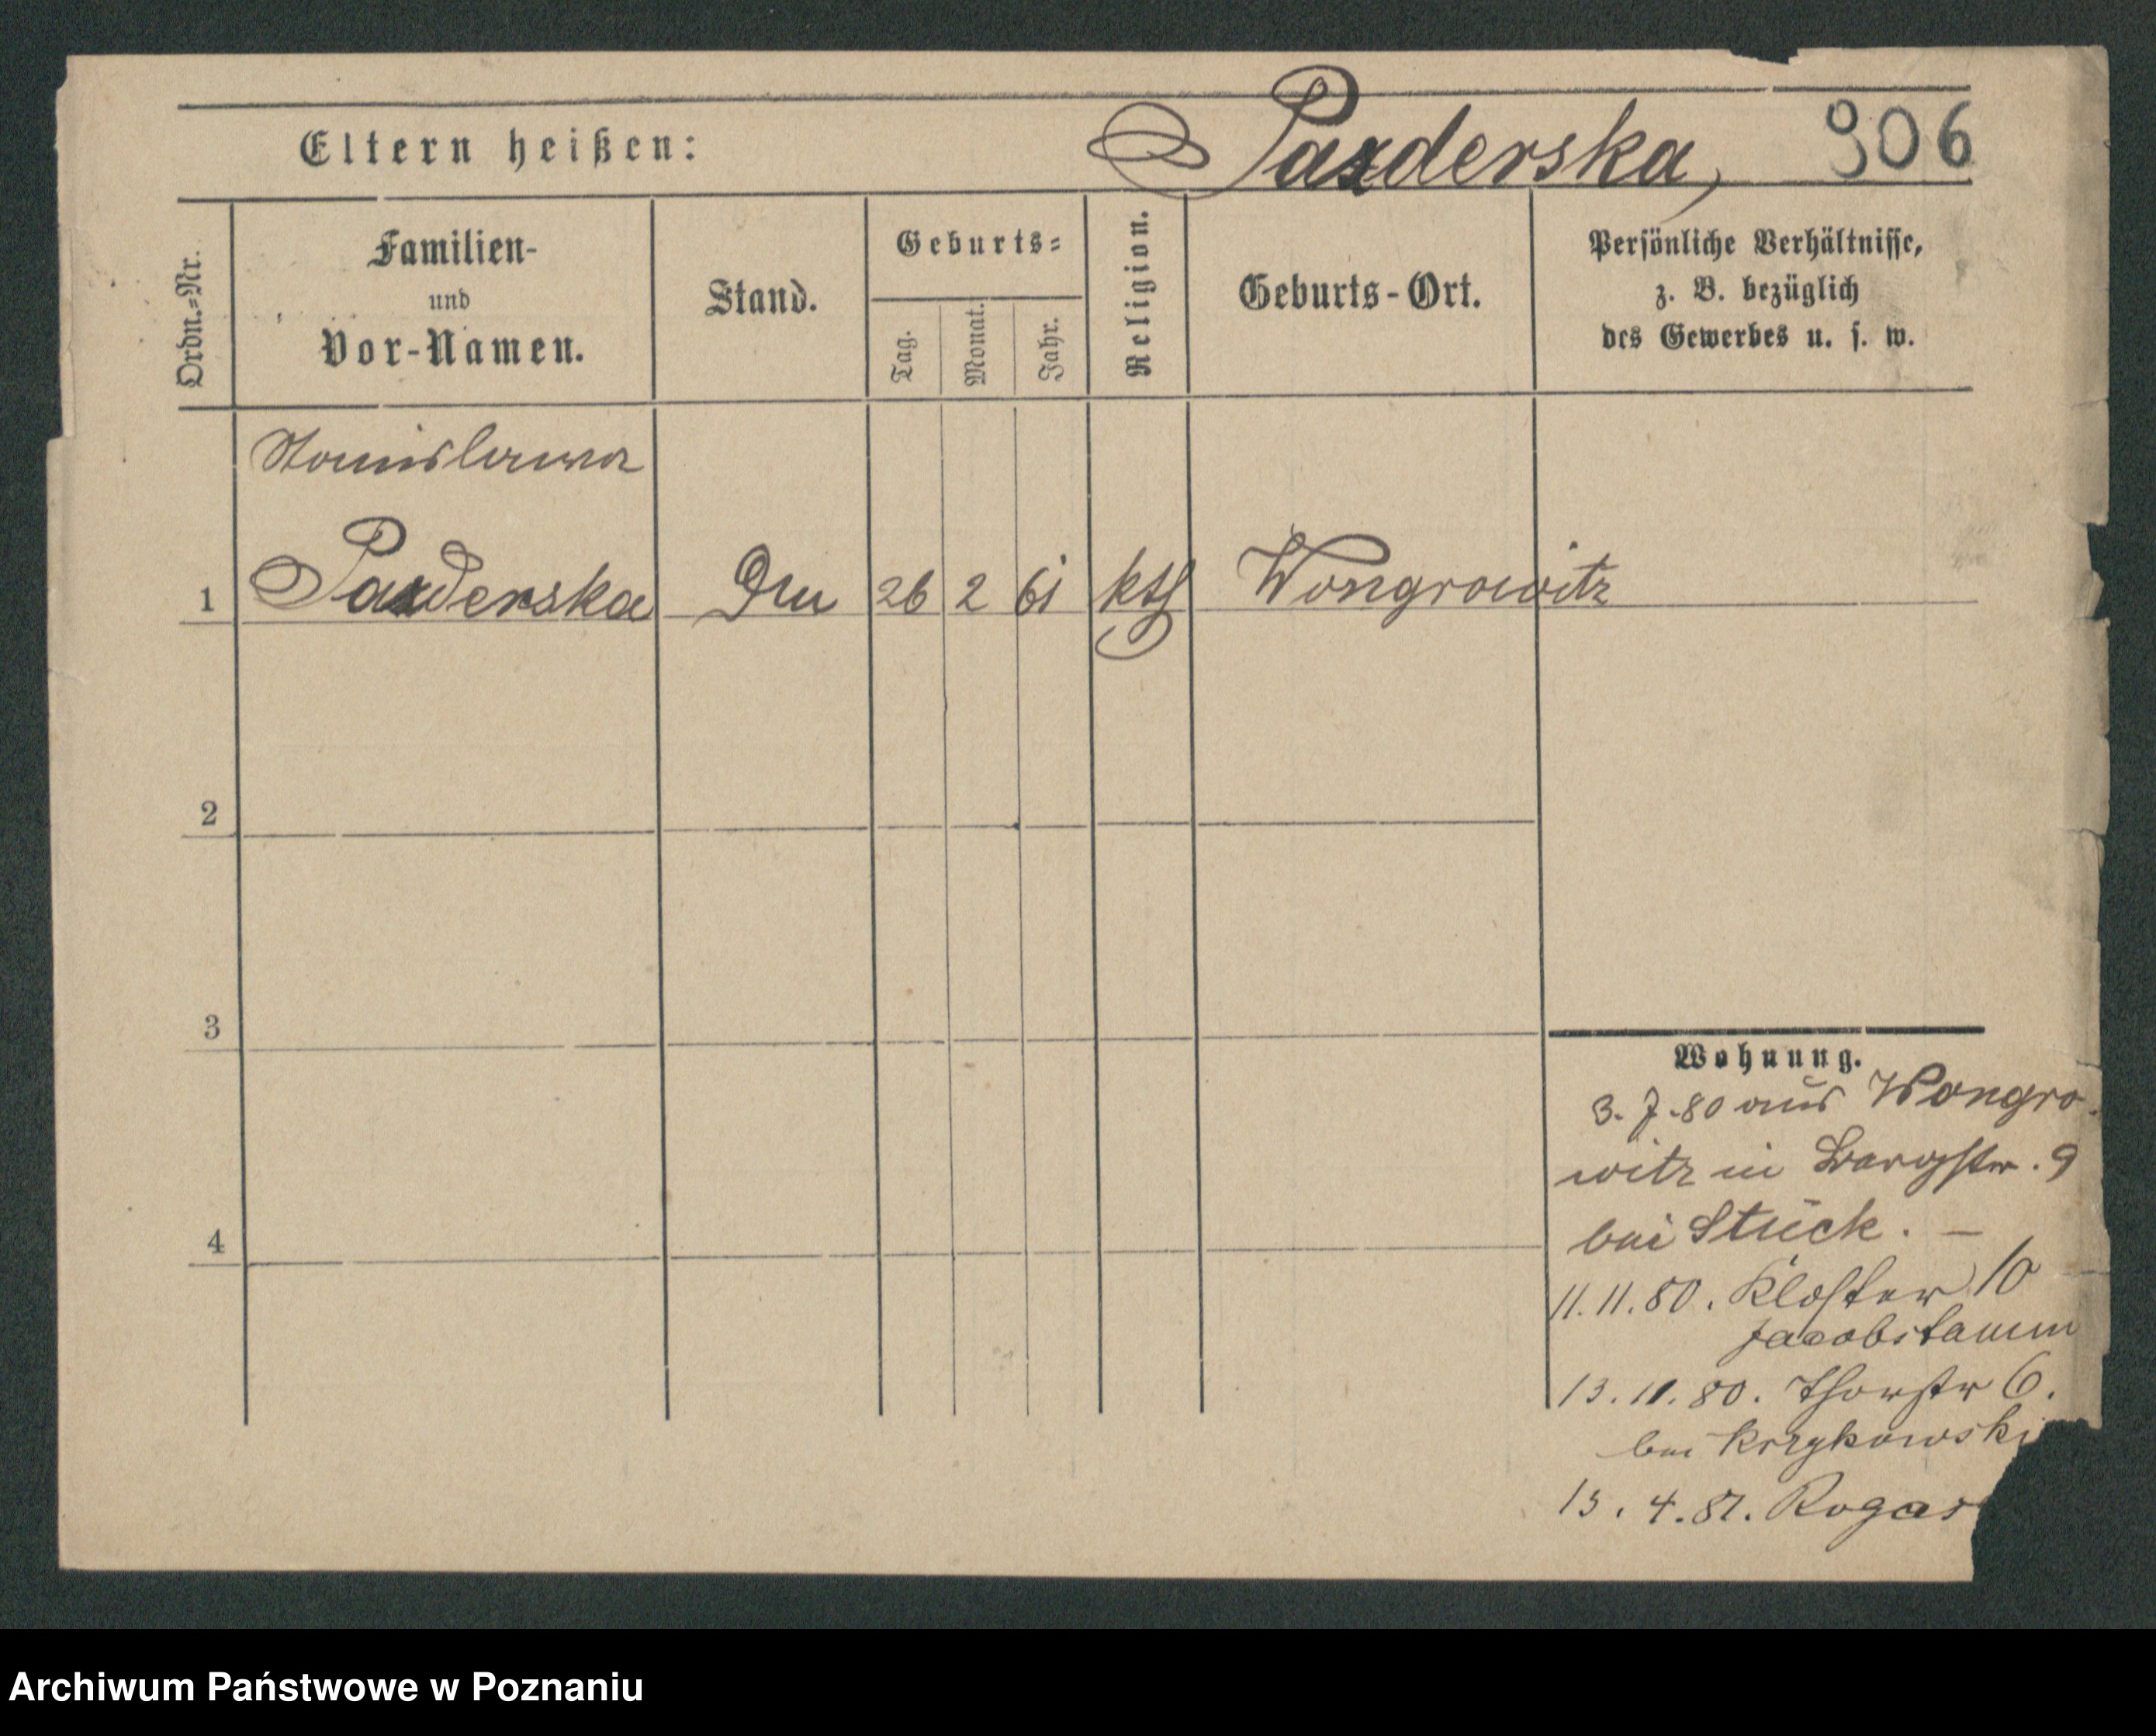 Eltern heißen:
Pazderska,
906
Ordn.-Nr.
Familien-
und
Vor-Namen.
Stand.
Geburts-
Tag.
Monat.
Jahr.
Religion.
Geburts-Ort.
Persönliche Verhältnisse,
z. B. bezüglich
des Gewerbes u. s. w.
Stanislawa
1 Pazderska 26 2 61 kth Wongrowitz
2
3
4
Wohnung.
3.7.80 aus Wongro
witz in Bergstr. 9
bei Stück. –
11.11.80. Kloster 10
13.11.80. Thorstr 6.
bei Krzykowski
15.4.81. Rogas
Archiwum Państwowe w Poznaniu